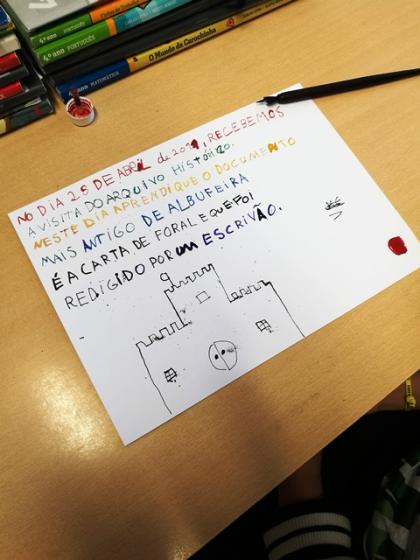 4.º ano PORTUGUÊS
4.º ano PORTUGUÊS
4.º ano MATEMÁTICA
O Mundo da Carochinha
NO DIA 29 DE ABRIL de 2019, RECEBEMOS
A VISITA DO ARQUIVO HISTÓRICO.
NESTE DIA APRENDI QUE O DOCUMENTO
MAIS ANTIGO DE ALBUFEIRA
É A CARTA DE FORAL E QUE FOI
REDIGIDO POR UM ESCRIVÃO.